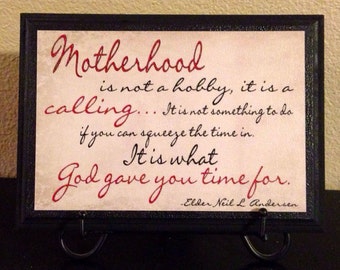 Motherhood
is not a hobby, it is a
calling... It is not something to do
if you can squeeze the time in.
It is what
God gave you time for.
-Elder Neil L. Andersen